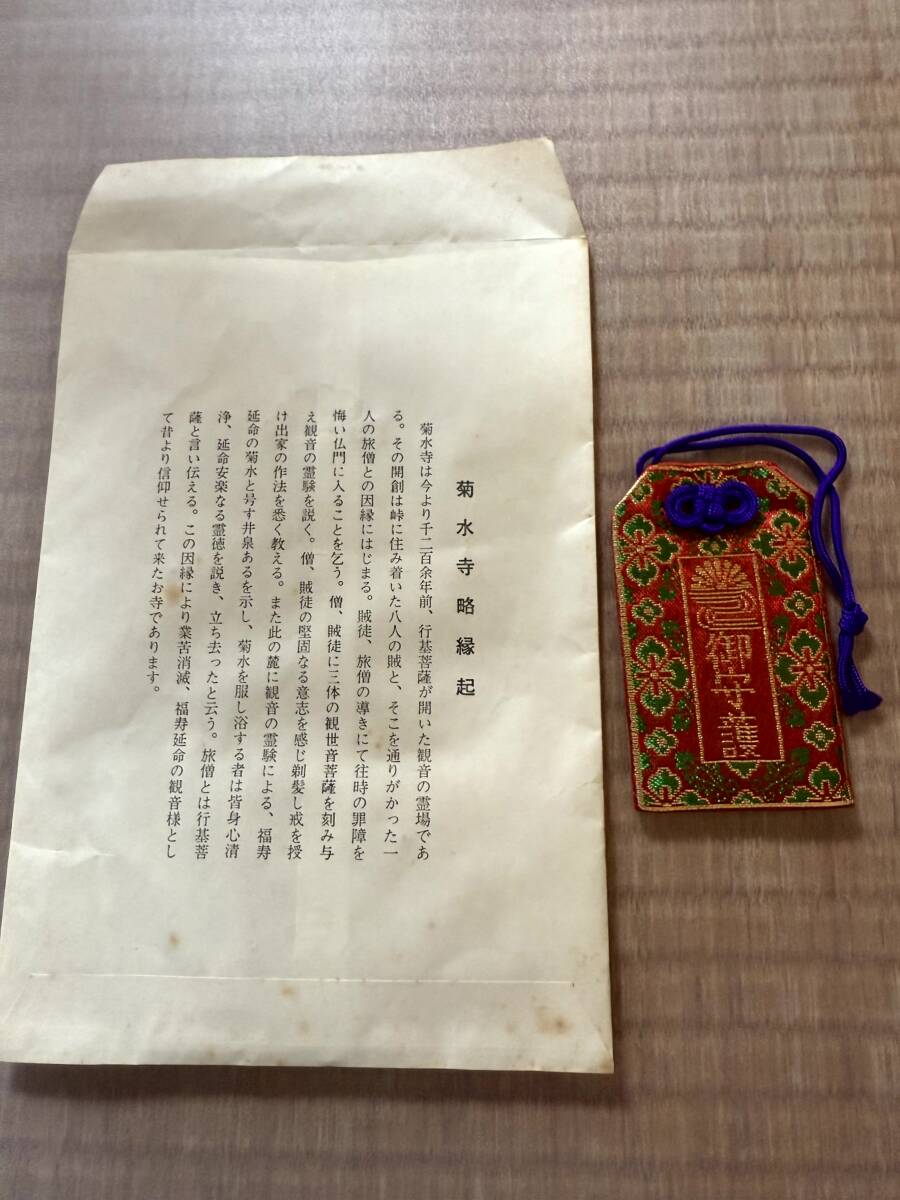 菊水寺略縁起
菊水寺は今より千二百余年前、行基菩薩が開いた観音の霊場であ
る。その開創は峠に住み着いた八人の賊と、そこを通りがかった一
人の旅僧との因縁にはじまる。賊徒、旅僧の導きにて往時の罪障を
悔い仏門に入ることを乞う。僧、賊徒に三体の観世音菩薩を刻み与
え観音の霊験を説く。僧、賊徒の堅固なる意志を感じ剃髪し戒を授
け出家の作法を悉く教える。また此の麓に観音の霊験による、福寿
延命の菊水と号す井泉あるを示し、菊水を服し浴する者は皆身心清
浄、延命安楽なる霊徳を説き、立ち去ったと云う。旅僧とは行基菩
薩と言い伝える。この因縁により業苦消滅、福寿延命の観音様とし
て昔より信仰せられて来たお寺であります。
御守護